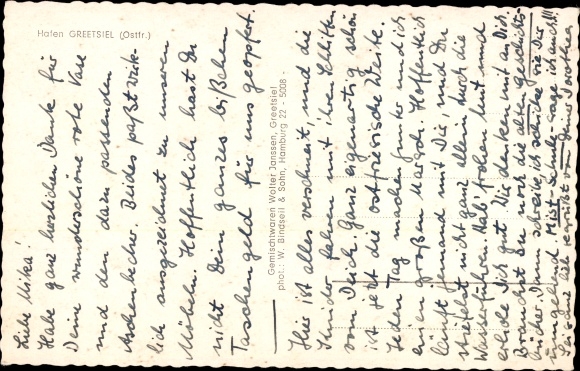 Hafen GREETSIEL (Ostfr.)
Liebe Mika!
Habe ganz herzlichen Dank für
Deine wunderschöne rote Vase
und den dazu passenden
Aschenbecher. Beides paßt wirk-
lich ausgezeichnet zu unseren
Möbeln. Hoffentlich hast Du
nicht Dein ganzes bißchen
Taschengeld für uns geopfert.
Gemischtwaren Wolter Janssen, Greetsiel
phot.: W. Bindseil & Sohn, Hamburg 22 - 5008 -
Hier ist alles verschneit, und die
Kinder fahren mit ihren Schlitten
vom Deich. Ganz eigenartig schön
ist jetzt die ostfriesische Weite.
Jeden Tag machen Gunter und ich
einen großen Marsch. Hoffentlich
läuft jemand mit Dir, und Du
streifst nicht ganz allein durch die
Wasserführer. Hab frohen Mut und
erhole Dich gut. Wir denken an Dich.
Brauchst Du noch die alten Geschichts-
bücher? Dann schreibe, ich schicke sie Dir
umgehend. Mist Schule sage ich auch!!!
Sei sehr lieb gegrüßt von Deiner Dorothea